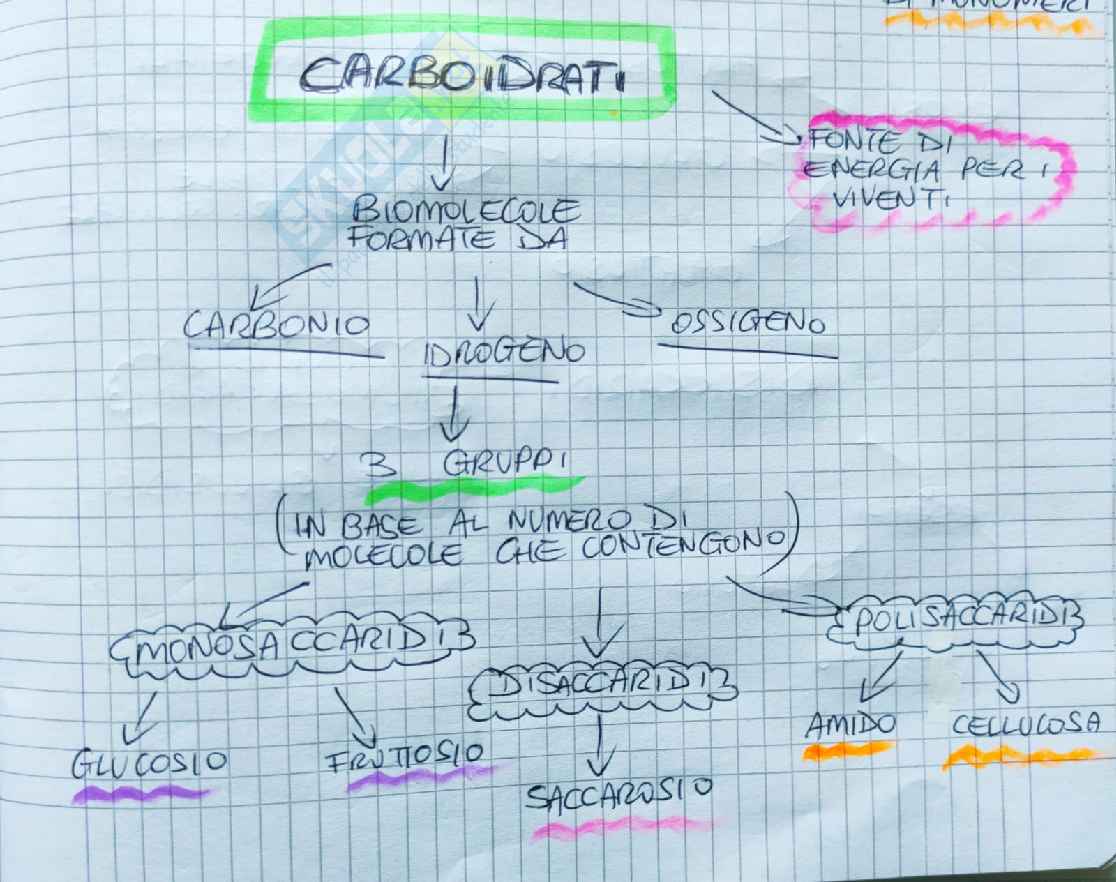 DI MONOMERI
CARBOIDRATI
FONTE DI
ENERGIA PER I
VIVENTI
BIOMOLECOLE
FORMATE DA
CARBONIO
IDROGENO
OSSIGENO
3 GRUPPI
(IN BASE AL NUMERO DI
MOLECOLE CHE CONTENGONO)
MONOSACCARIDI
DISACCARIDI
POLISACCARIDI
GLUCOSIO
FRUTTOSIO
SACCAROSIO
AMIDO
CELLULOSA